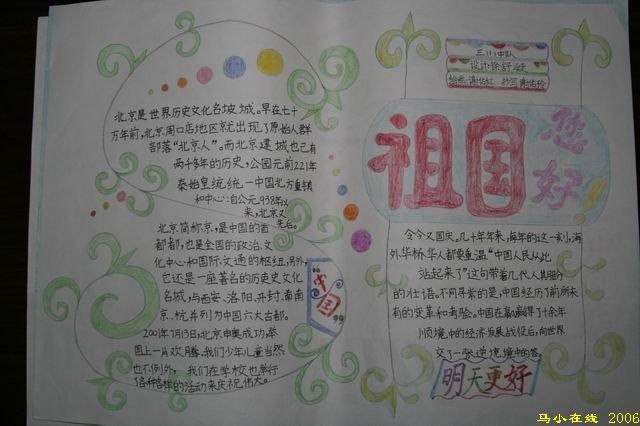 北京是世界历史文化名坡城。早在七十
万年前，北京周口店地区就出现了原始人群
部落“北京人”。而北京建城也已有
两千多年的历史，公园元前221年
秦始皇统统一中国北方重镇
和中心：自公元938年以
来，北京又
先后。
北京简称京，是中国的首
都都，也是全国的政治、文
化中心和国际交通的枢纽，另外，
它还是一座著名的历史史文化
名城，与西安、洛阳、开封、南南
京、杭并列为中国六大古都。
2001年7月13日，北京申奥成功，举
国上一片欢腾，我们少年儿童当然
也不例外， 我们在学校也举行
各种各样的活动来庆祝伟大。
“中
国”
三小中队
设计：徐舒
祖国
您
好！
今令又国庆。几十年年来，每年的这一刻，海
外华侨华人都要重温“中国人民从此
站起来了”这句带着几代人共
的壮语。不同寻常的是，中国经历了前所未
有的变革和考验。中国在赢得了十余年
顺境中的经济发展战役后，向世界
交了一张逆境境中的答。
明天更好
马小在线 2006